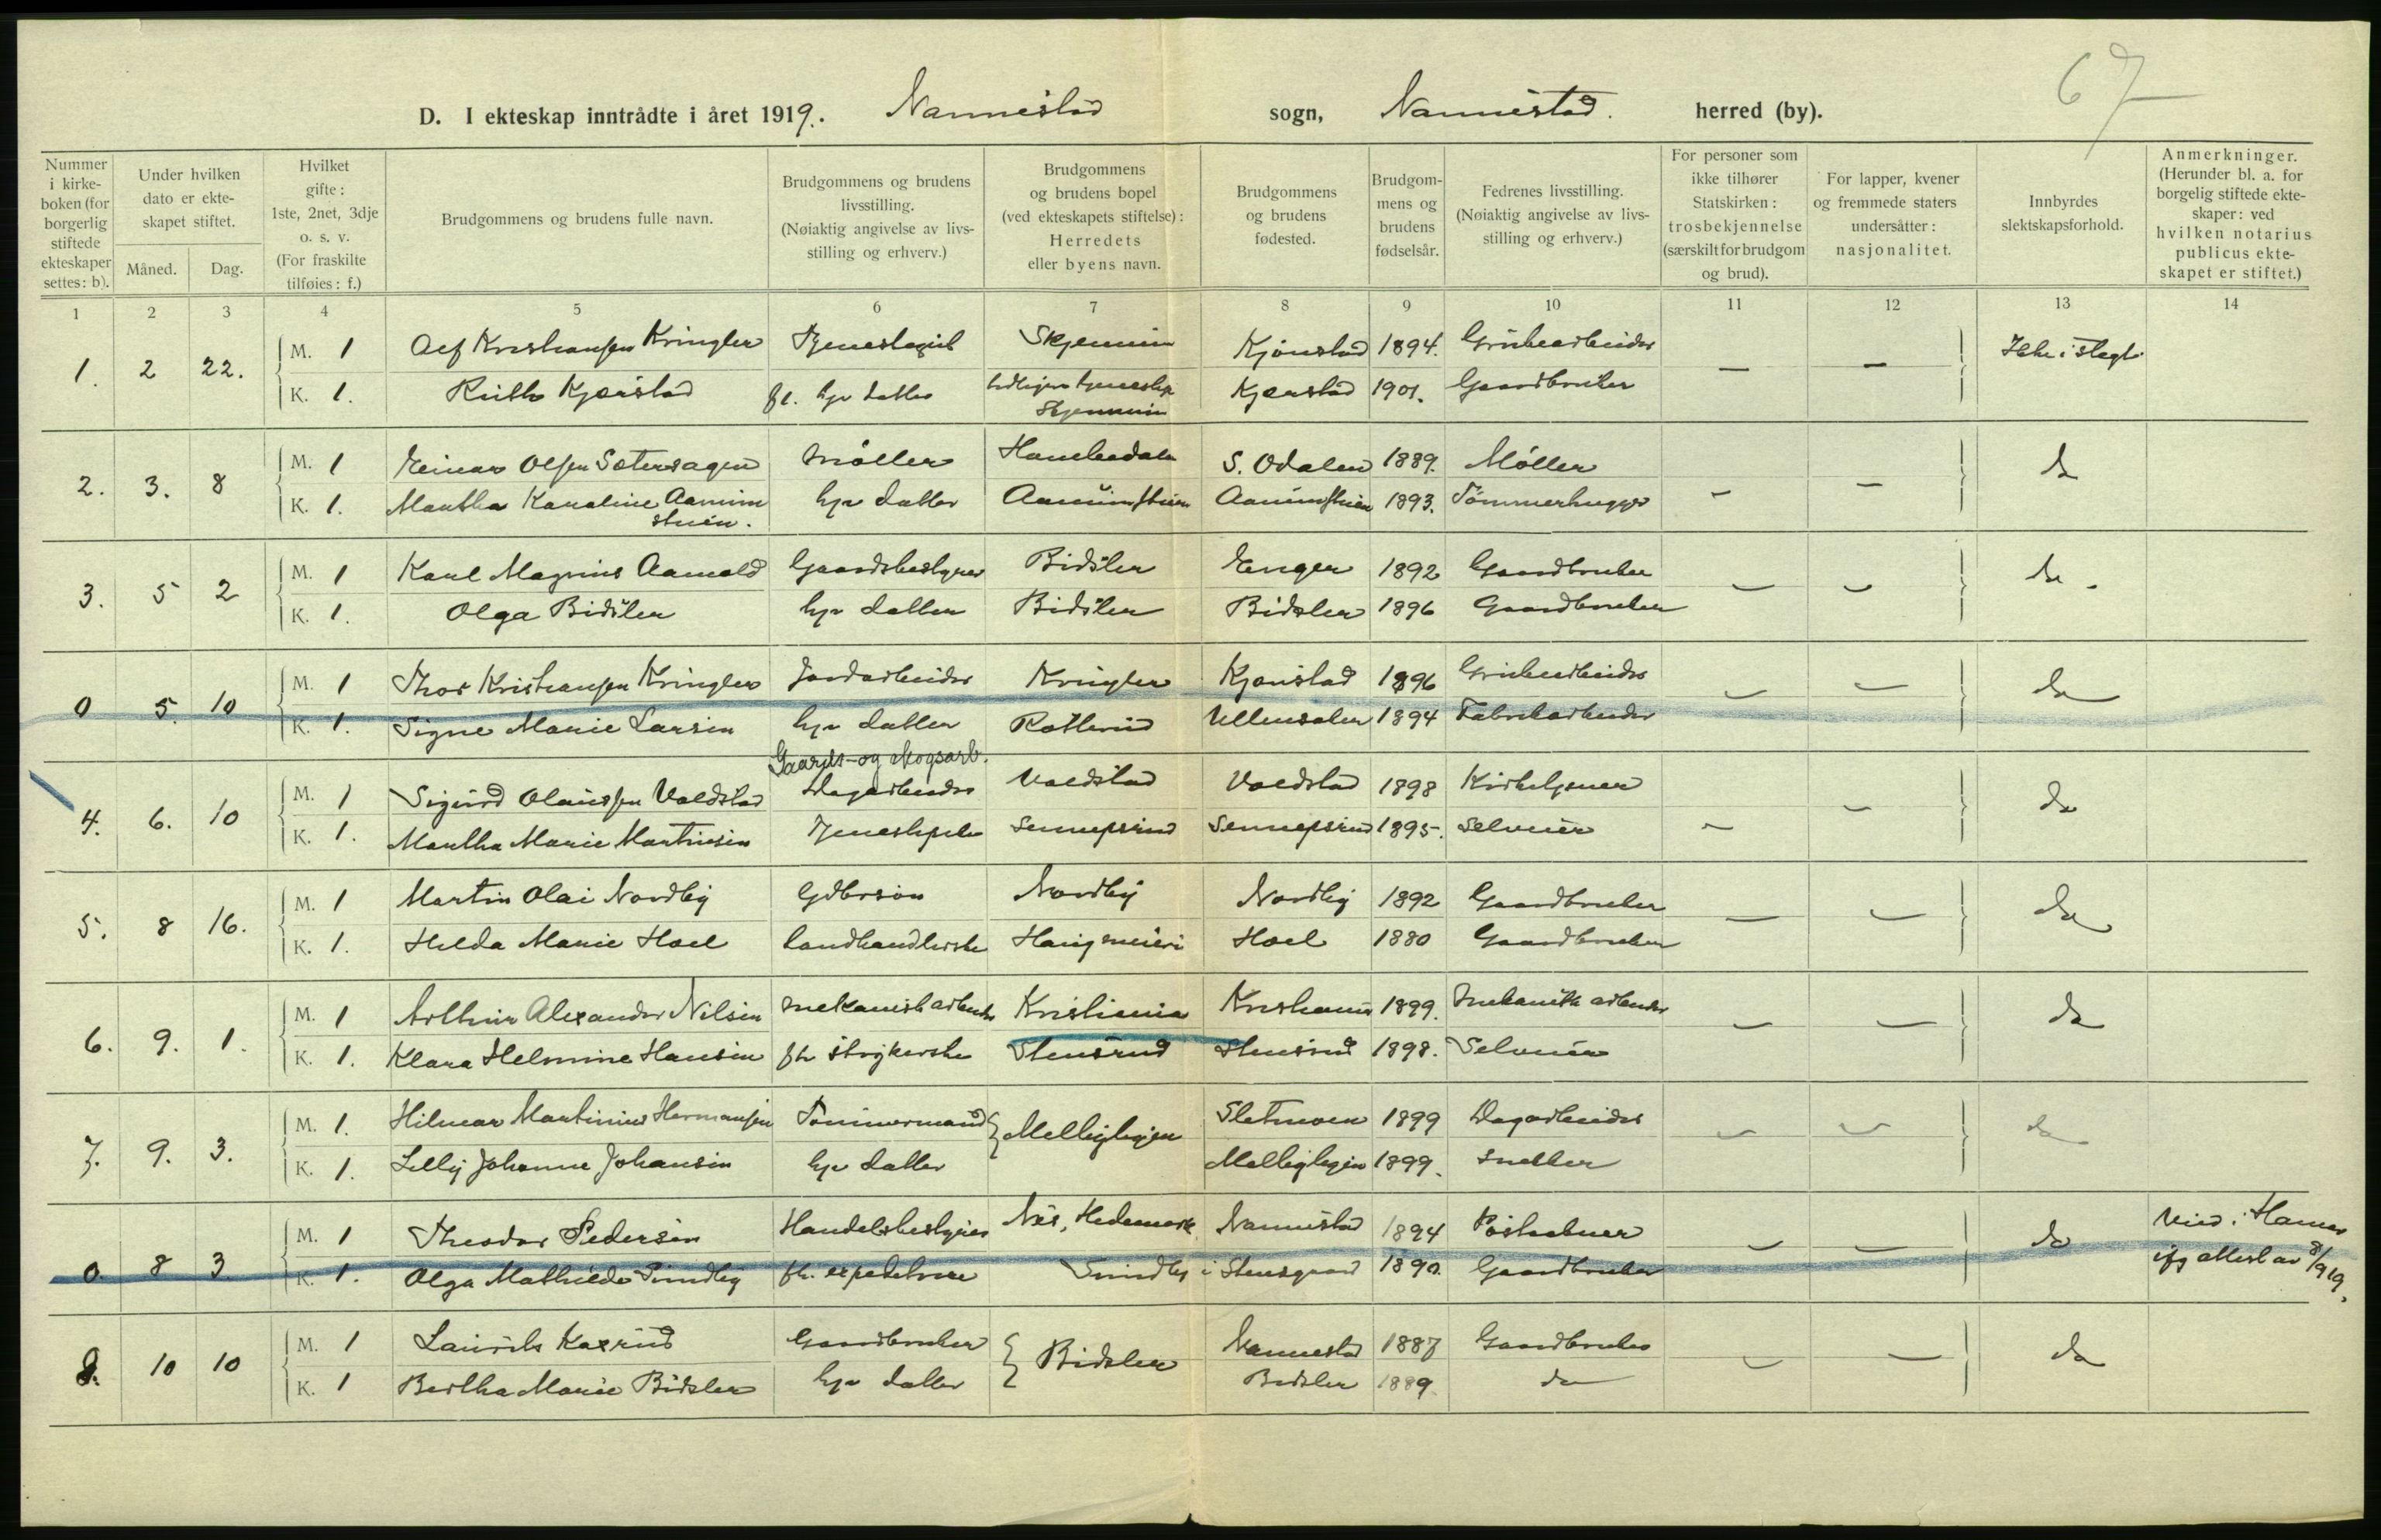 67
D. I ekteskap inntrådte i året 1919. Nannestad sogn, Nannestad. herred (by).
Nummer i kirke-boken (for borgerlig stiftede ekteskaper settes: b).
Under hvilken dato er ekte-skapet stiftet.
Måned. Dag.
Hvilket gifte: 1ste, 2net, 3dje o. s. v. (For fraskilte tilføies: f.)
Brudgommens og brudens fulle navn.
Brudgommens og brudens livsstilling. (Nøiaktig angivelse av livs-stilling og erhverv.)
Brudgommens og brudens bopel (ved ekteskapets stiftelse): Herredets eller byens navn.
Brudgommens og brudens fødested.
Brudgom-mens og brudens fødselsår.
Fedrenes livsstilling. (Nøiaktig angivelse av livs-stilling og erhverv.)
For personer som ikke tilhører Statskirken: trosbekjennelse (særskilt for brudgom og brud).
For lapper, kvener og fremmede staters undersåtter: nasjonalitet.
Innbyrdes slektskapsforhold.
Anmerkninger. (Herunder bl. a. for borgelig stiftede ekte-skaper: ved hvilken notarius publicus ekte-skapet er stiftet.)
1 2 3 4 5 6 7 8 9 10 11 12 13 14
1. 2 22. M. 1 Alf Kristiansen Kringler Skjennum Kjonstad 1894. Grubearbeider — — Ikke i slegt
K. 1. Ruth Kjærstad hjv datter Skjennum Kjærstad 1901. Gaardbruker
2. 3. 8 M. 1 Einar Olsen Møller S. Odalen 1889. Møller — — do
K. 1. Martha Karoline Aamum stuen. hjv datter Aamumstuen Aamumstuen 1893. Tømmerhugger
3. 5 2 M. 1 Karl Magnus Aamold Gaardsbestyrer Bidsler Enger 1892 Gaardbruker — — do
K. 1. Olga Bidsler hjv datter Bidsler Bidsler 1896 Gaardbruker
0 5. 10 M. 1 Thor Kristiansen Kringler Jordarbeider Kringler Kjonstad 1896 Grubearbeider — — do
K. 1. Signe Marie Larsen hjv datter Ullensaker 1894 Fabrikarbeider
Gaards- og skogsarb.
4. 6. 10 M. 1 Sigurd Olaussen Voldstad Dagarbeider Voldstad Voldstad 1898 Kirketjener — — do
K. 1. Martha Marie Martinsen Tjenestpike Sennepsrud Sennepsrud 1895. Selveier
5. 8 16. M. 1 Martin Olai Nordby Gdbrsøn Nordby Nordby 1892 Gaardbruker — — do
K. 1. Helda Marie Hoel Landhandlerske Hoel 1880 Gaardbruker
6. 9. 1. M. 1 Arthur Alexander Nilsen mekanisk arbeider Kristiania Kristiania 1899. Mekanisk arbeider — — do
K. 1. Klara Helmine Hansen fh strykerske Stensrud Stensrud 1898. Selveier
7. 9. 3. M. 1. Hilmar Martinius Hermansen Tømmermand Mellbybyen Sletmoen 1899 Dagarbeider — — do
K. 1. Lilly Johanne Johansen hjv datter Mellbybyen 1899. Snekker
0. 8 3 M. 1 Theodor Pedersen Handelsbestyrer Nes, Hedemark Nannestad 1894 Postaabner — — do Viet i Hamar
K. 1. Olga Mathilde fh. Stensgaard 1890. Gaardbruker ifg attest av 8/9 19.
8. 10 10 M. 1 Laurits Kaxrud Gaardbruker Bidsler Nannestad 1887 Gaardbruker — — do
K. 1 Bertha Marie Bidsler hjv datter Bidsler 1889. do